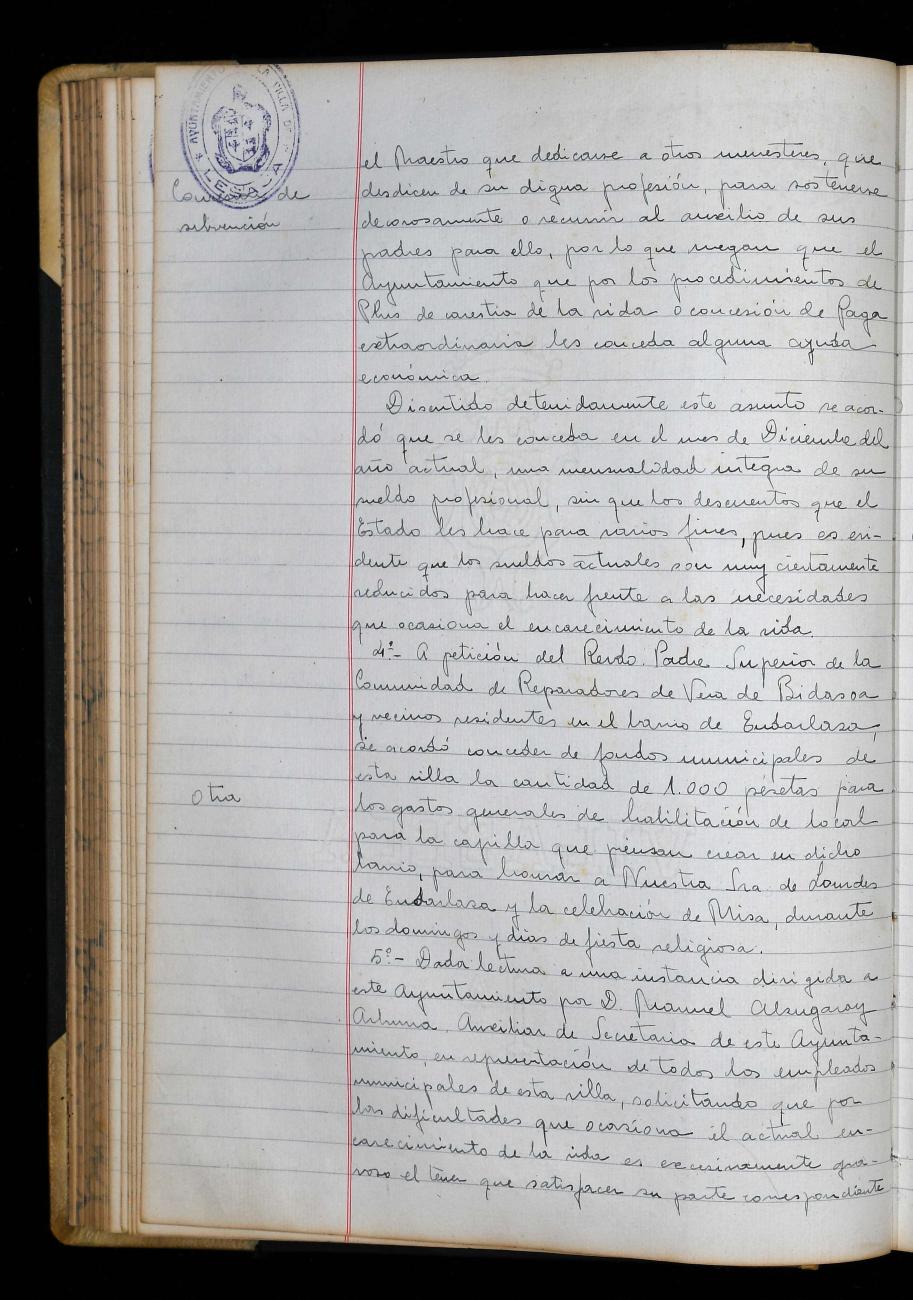 AYUNTAMIENTO DE LA VILLA DE
LESACA
Concesión de
subvención
el Maestro que dedicarse a otros menesteres, que
desdicen de su digna profesión, para sostenerse
decorosamente o recurrir al auxilio de sus
padres para ello, por lo que ruegan que el
Ayuntamiento que por los procedimientos de
Plus de carestia de la vida o concesión de Paga
extraordinaria les conceda alguna ayuda
económica.
Discutido detenidamente este asunto se acor-
dó que se les conceda en el mes de Diciembre del
año actual, una mensualidad integra de su
sueldo profesional, sin que los descuentos que el
Estado les hace para varios fines, pues es evi-
dente que los sueldos actuales son muy ciertamente
reducidos para hacer frente a las necesidades
que ocasiona el encarecimiento de la vida.
4º.- A petición del Revdo. Padre Superior de la
Comunidad de Reparadores de Vera de Bidasoa
y vecinos residentes en el barrio de Endarlasa,
se acordó conceder de fondos municipales de
esta villa la cantidad de 1.000 pesetas para
Otra
los gastos generales de habilitación de local
para la capilla que piensan crear en dicho
barrio, para honrar a Nuestra Sra. de Lourdes
de Endarlasa y la celebración de Misa, durante
los domingos y dias de fiesta religiosa.
5º.- Dada lectura a una instancia dirigida a
este Ayuntamiento por D. Manuel Alzugaray
Auxiliar de Secretaria de este Ayunta-
miento, en representación de todos los empleados
municipales de esta villa, solicitando que por
las dificultades que ocasiona el actual en-
carecimiento de la vida es excesivamente gra-
voso el tener que satisfacer su parte correspondiente